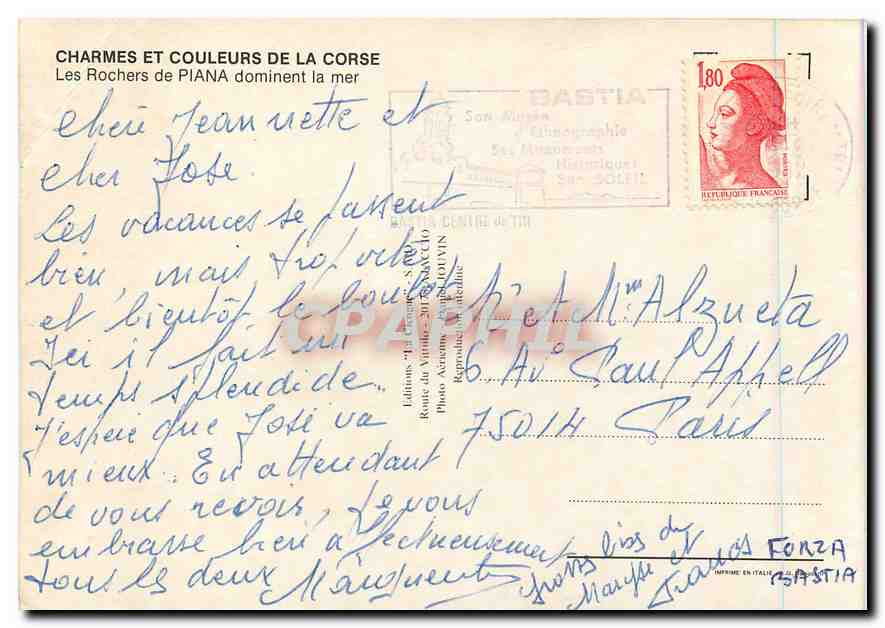 CHARMES ET COULEURS DE LA CORSE
Les Rochers de PIANA dominent la mer
BASTIA
Son Musée
d'Ethnographie
Ses Monuments
Historiques
Son SOLEIL
BASTIA CENTRE de TRI
1,80
REPUBLIQUE FRANÇAISE
Chère Jeannette et
cher José.
Les vacances se passent
bien, mais trop vite
et bientôt le boulot
Ici il fait un
temps splendide.
J'espère que José va
mieux. En attendant
de vous revoir, je vous
embrasse bien affectueusement
tous les deux Marguerite
grosses bises de
Maryse et
Francis
FORZA
BASTIA
Editions "La Cigogne"
Route du Vittolo - 20 AJACCIO
Photo Aérienne JOUVIN
Reproduction interdite
Mr et Mme Alzueta
6 Ave Paul Appell
75014 Paris
IMPRIMÉ EN ITALIE
CPAPHIL